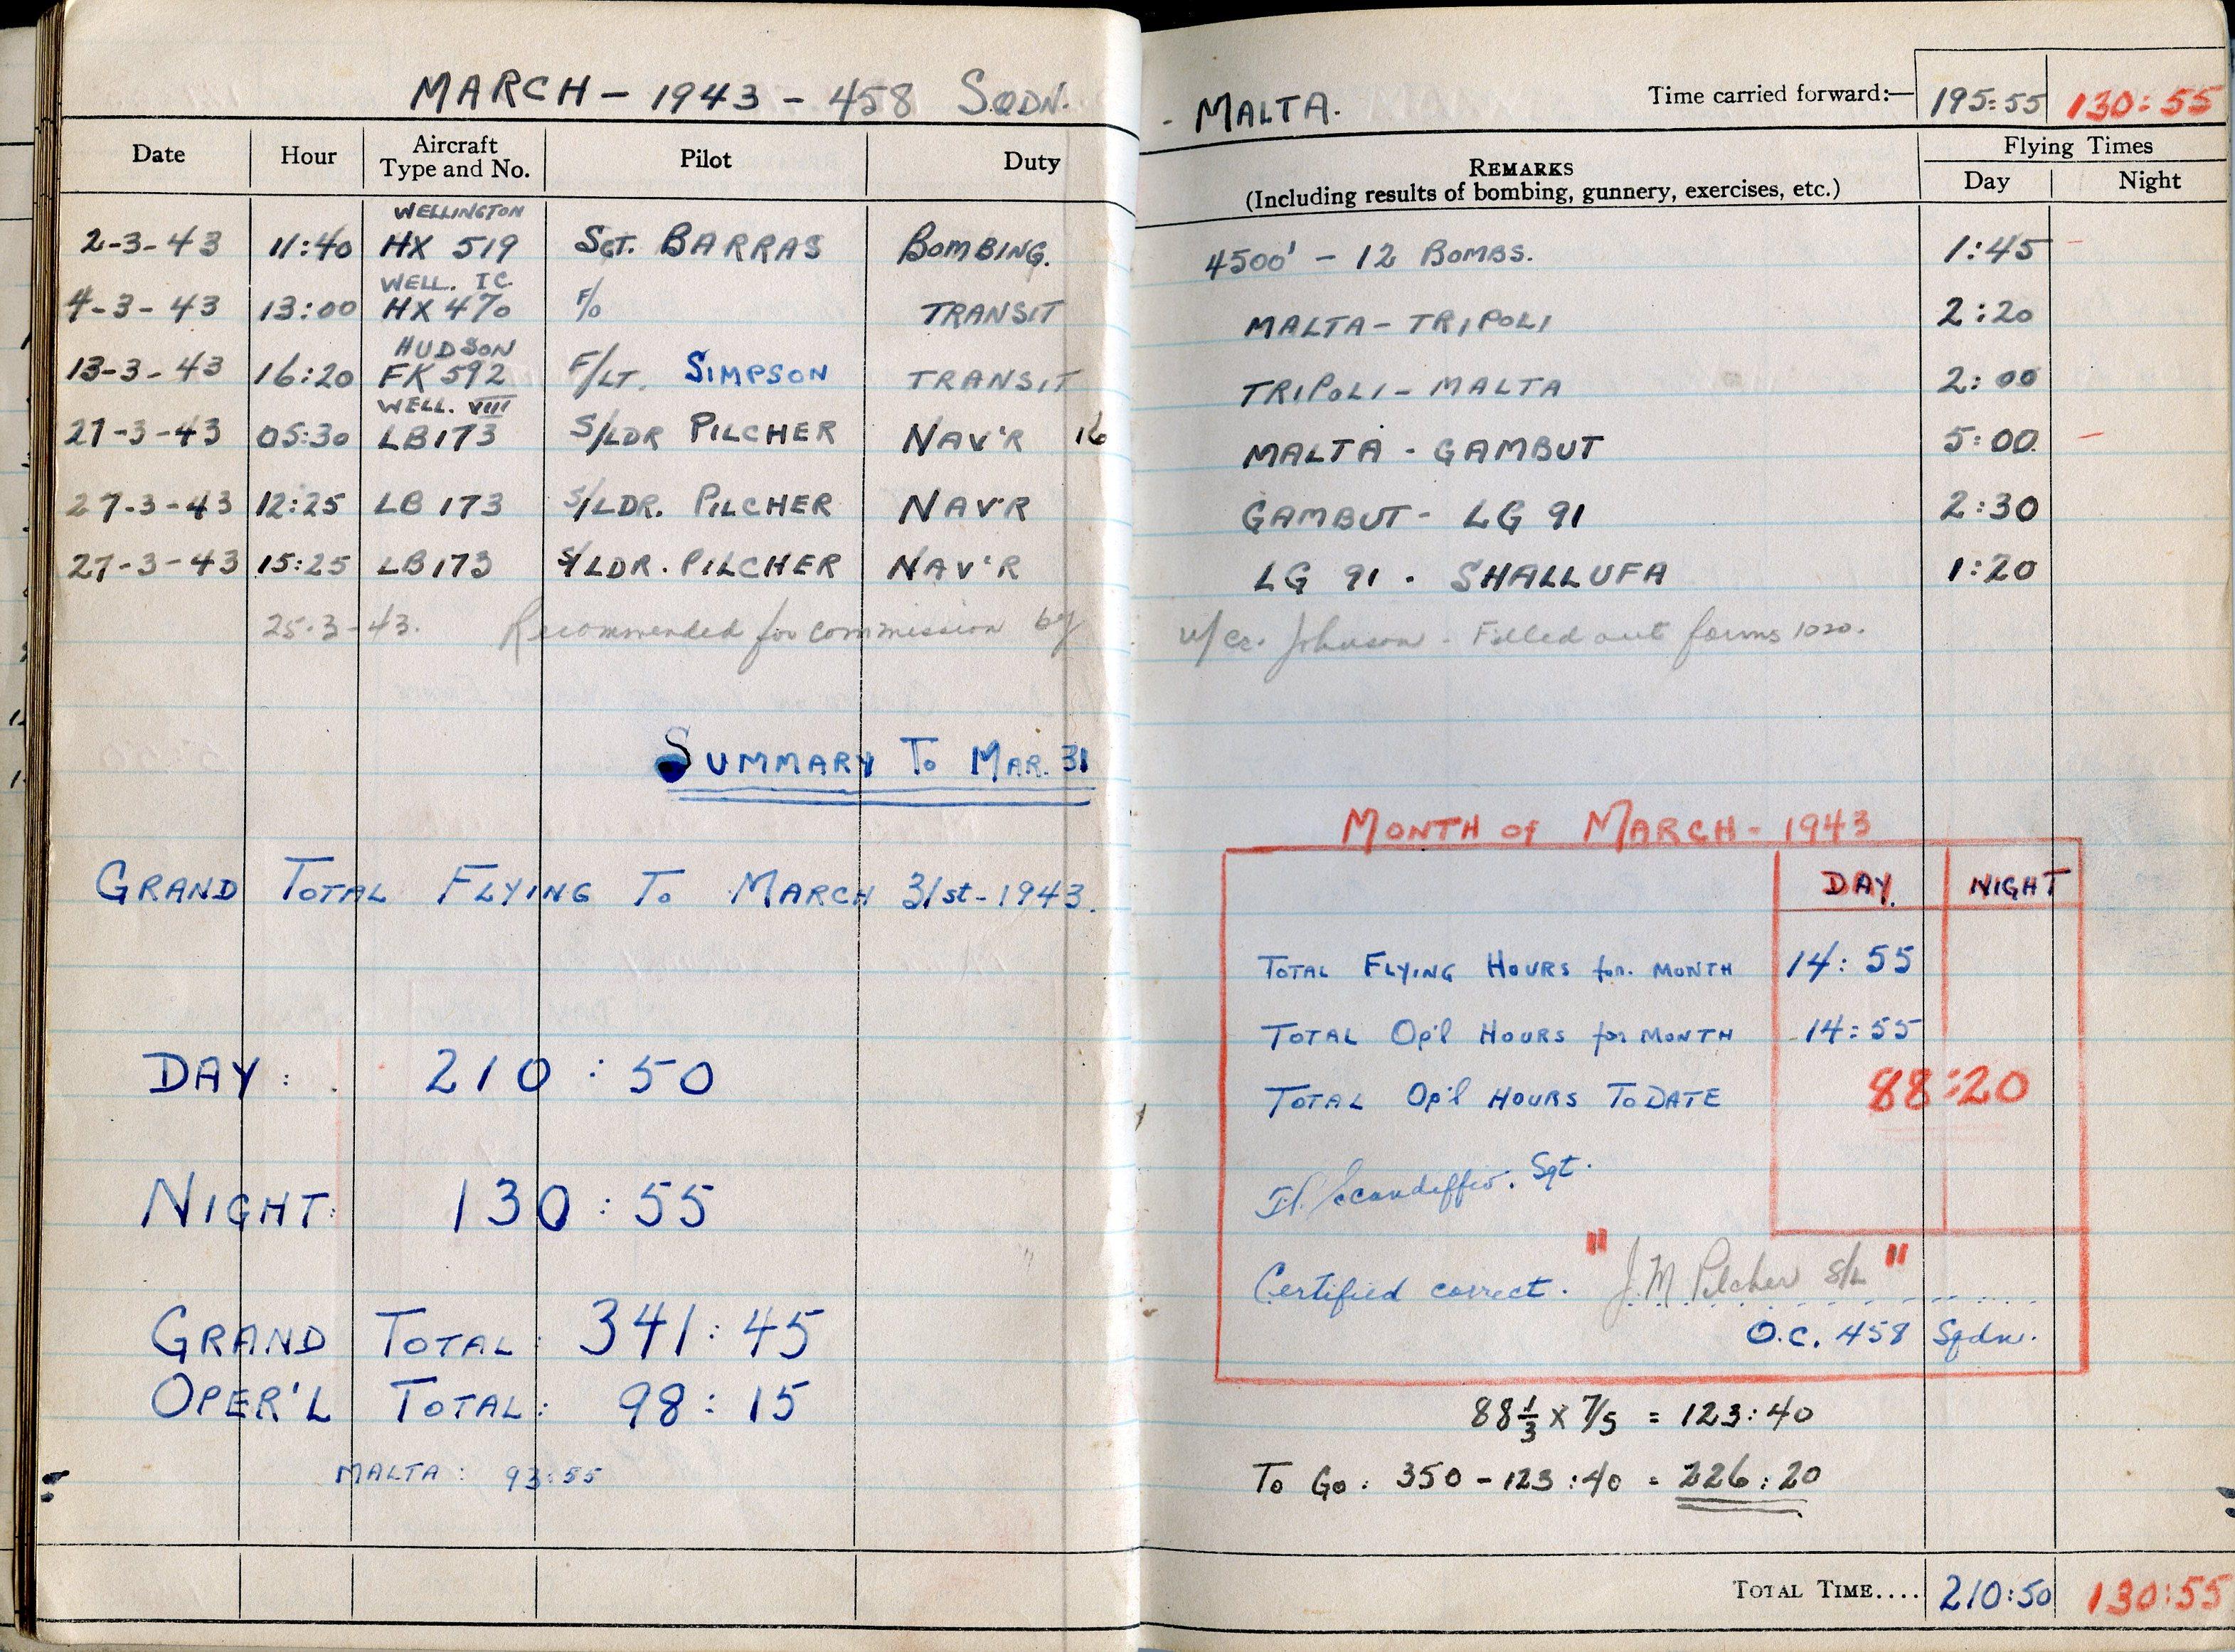 MARCH - 1943 - 458 SQDN.
Date Hour Aircraft Type and No. Pilot Duty
WELLINGTON
2-3-43 11:40 HX 519 SGT. BARRAS BOMBING.
WELL. IC.
4-3-43 13:00 HX 470 F/O TRANSIT
HUDSON
13-3-43 16:20 FK 592 F/LT. SIMPSON TRANSIT
WELL. VIII
27-3-43 05:30 LB173 S/LDR PILCHER NAV'R 16
27-3-43 12:25 LB 173 S/LDR. PILCHER NAV'R
27-3-43 15:25 LB173 S/LDR. PILCHER NAV'R
25-3-43. Recommended for commission by
SUMMARY TO MAR. 31
GRAND TOTAL FLYING TO MARCH 31st - 1943.
DAY: 210:50
NIGHT: 130:55
GRAND TOTAL: 341:45
OPER'L TOTAL: 98:15
MALTA: 93:55
- MALTA.
Time carried forward:— 195:55 130:55
REMARKS
(Including results of bombing, gunnery, exercises, etc.)
Flying Times
Day Night
4500' - 12 BOMBS. 1:45 -
MALTA - TRIPOLI 2:20
TRIPOLI - MALTA 2:00
MALTA - GAMBUT 5:00 -
GAMBUT - LG 91 2:30
LG 91 . SHALLUFA 1:20
Johnson - Filled out forms 1020.
MONTH of MARCH - 1943
DAY. NIGHT
TOTAL FLYING HOURS for. MONTH 14:55
TOTAL Op'l HOURS for MONTH 14:55
TOTAL Op'l HOURS TO DATE 88:20
Sgt.
Certified correct. "J.M Pilcher S/L"
O.C. 458 Sqdn.
88 1/3 x 7/5 = 123:40
To Go: 350 - 123:40 = 226:20
TOTAL TIME.... 210:50 130:55